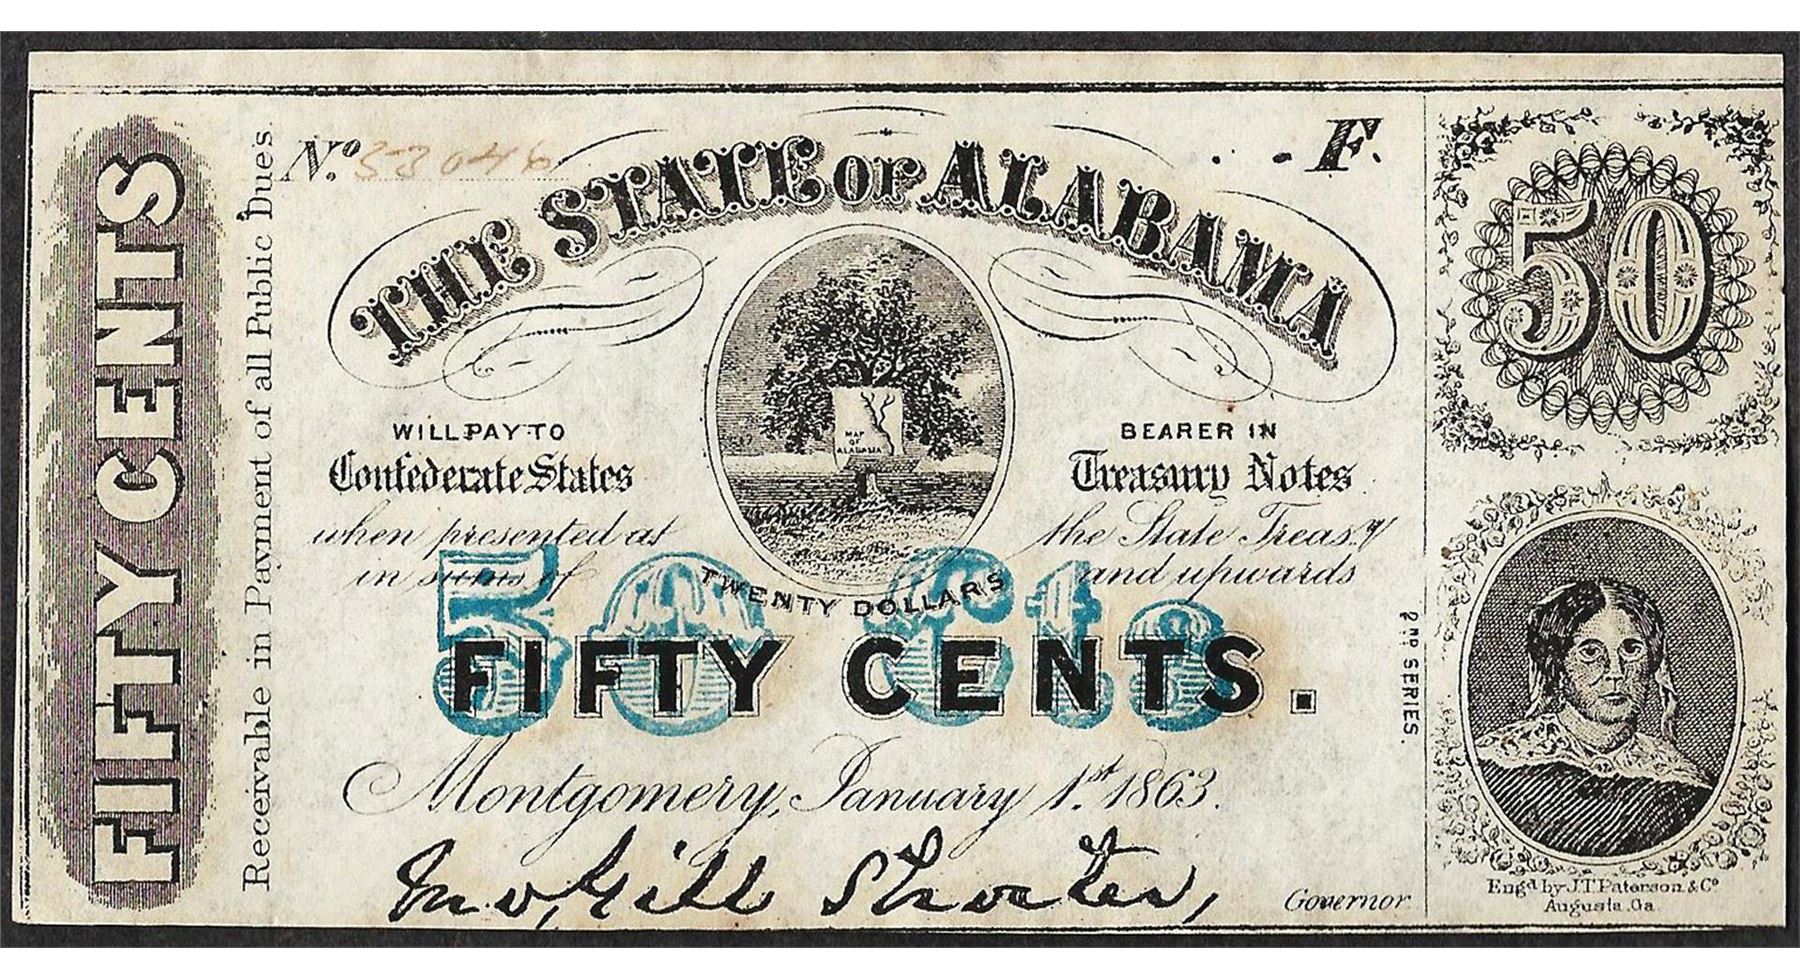 FIFTY CENTS
Receivable in Payment of all Public Dues.
No. 33046
F.
THE STATE OF ALABAMA
50
WILL PAY TO
BEARER IN
MAP
OF
ALABAMA
Confederate States
Treasury Notes
when presented at
the State Treas.y
in sums of
TWENTY DOLLARS
and upwards
50 Cts
FIFTY CENTS.
2ND SERIES.
Montgomery, January 1st 1863.
Jno, Gill Shorter,
Governor
Engd by J.T. Paterson & Co
Augusta. Ga